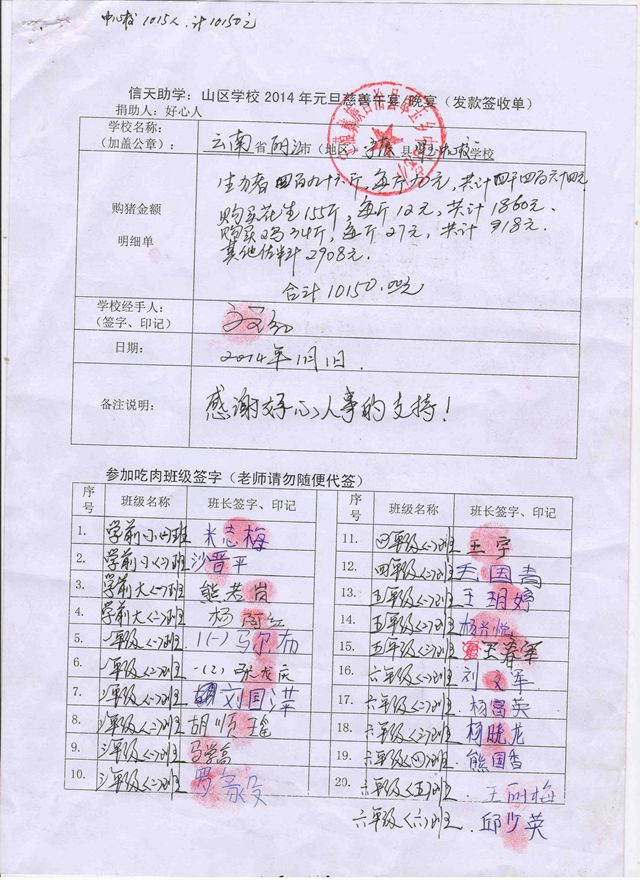 中心校1015人,计10150元
信天助学:山区学校2014年元旦慈善午宴/晚宴(发款签收单)
捐助人:好心人
学校名称:
(加盖公章):
云南省丽江市(地区)宁蒗县 学校
购猪金额
明细单
每斤 元,共计四千四百六十四元
购买花生155斤,每斤12元,共计1860元.
购买鸡34斤,每斤27元,共计918元.
其他佐料计2908元.
合计10150.00元
学校经手人:
(签字、印记)
日期:
2014年1月1日.
备注说明:
感谢好心人事的支持!
参加吃肉班级签字(老师请勿随便代签)
序号 班级名称 班长签字、印记
1. 学前小(一)班 米志梅
2. 学前小(二)班 沙晋平
3. 学前大(一)班 熊老岗
4. 学前大(二)班 杨雨红
5. 一年级(一)班 1(一)马尔布
6. 一年级(二)班 一(2) 张龙庆
7. 二年级(一)班 刘国泽
8. 二年级(二)班 胡顺瑶
9. 三年级(一)班 马学高
10. 三年级(二)班 罗
序号 班级名称 班长签字、印记
11. 四年级(一)班 王宇
12. 四年级(二)班 国青
13. 五年级(一)班 王玥婷
14. 五年级(二)班 杨
15. 五年级(三)班 王春军
16. 六年级(一)班 刘文军
17. 六年级(二)班 杨富英
18. 六年级(三)班 杨晓龙
19. 六年级(四)班 熊国香
20. 六年级(五)班. 王丽梅
六年级(六)班. 邱少英